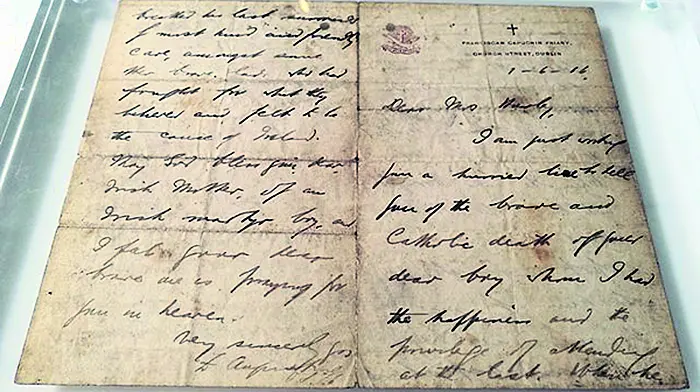 FRANCISCAN CAPUCHIN FRIARY,
CHURCH STREET, DUBLIN
1-6-16.
Dear Mrs Hurley,
I am just writing
you a hurried line to tell
you of the brave and
Catholic death of your
dear boy whom I had
the happiness and the
privilege of attending
at the last. When he
breathed his last surrounded
by most kind and friendly
care, amongst some
other brave lads who had
fought for what they
believed and felt to be
the cause of Ireland.
May God bless you, dear
Irish Mother, of an
Irish martyr boy, and
I feel your dear
brave one is praying for
you in heaven.
Very sincerely yrs
Fr Augustine